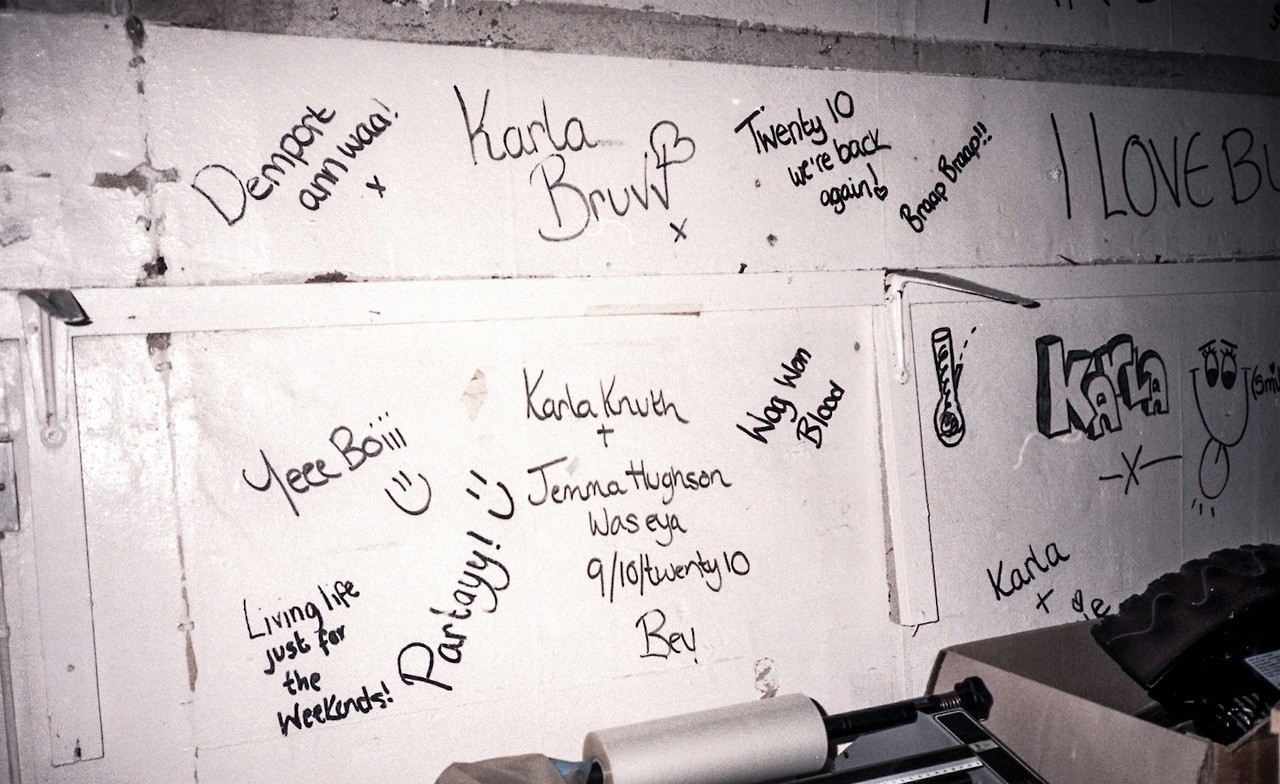 Demport
ann waa!
x
Karla
Bruvv
x
Twenty 10
we're back
again!
Braap Braap!!
I LOVE BU
Yeee Boiii
Partayy!
Living life
just for
the
Weekends!
Karla Knuth
+
Jemma Hughson
Was eya
9/10/twenty10
Bev
Wag Wan
Blood
KARLA
-X-
(Smil
Karla
x